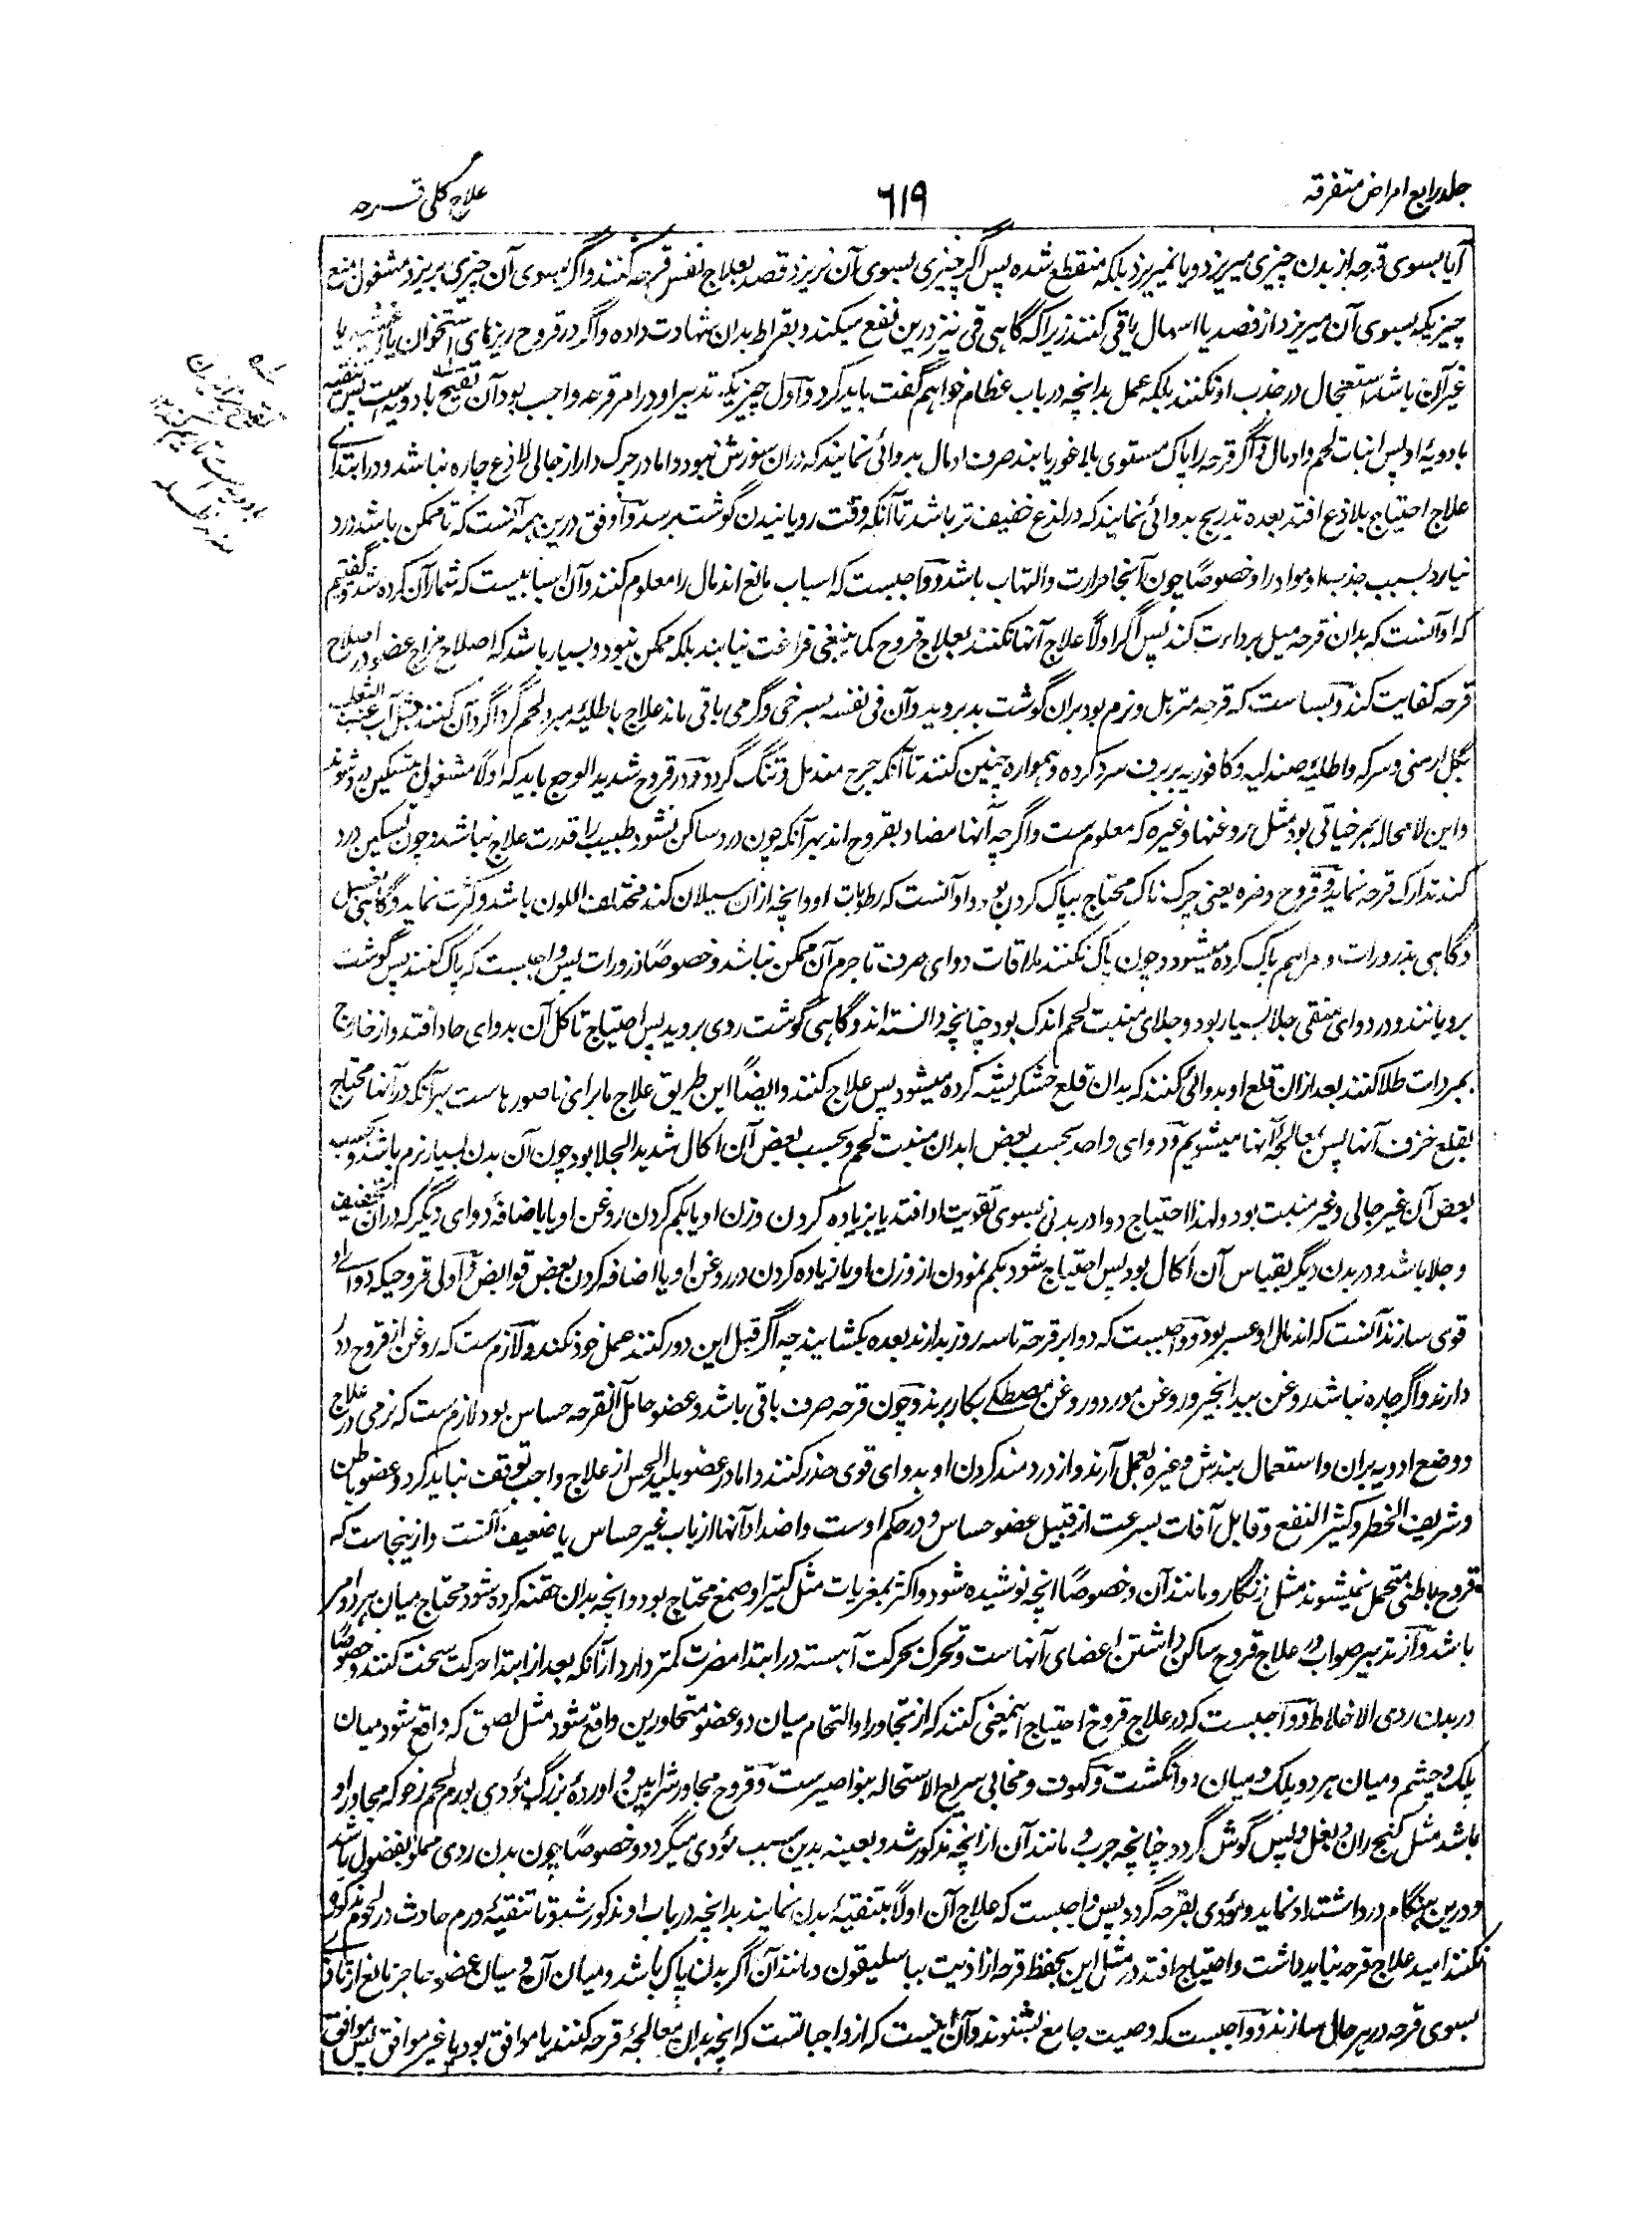 جلد رابع امراض متفرقه
۶۱۹
علاج کلی قرحه
آیا بسوی قرحه از بدن چیزی میریزد و یا نمیریزد بلکه منقطع شده پس اگر چیزی بسوی آن نریزد قصد بعلاج نفس قرحه کنند و اگر بسوی آن چیزی بریزد مشغول بمنع
چیزیکه بسوی آن میریزد از فصد یا اسهال یا قی کنند زیرا که گاهی قی نیز درین نفع میکند و بقراط بدان شهادت داده و اگر در قروح ریزهای استخوان یا اغشیه یا
غیر آن باشد استعجال در جذب او نکنند بلکه عمل بدانچه در باب عظام خواهم گفت باید کرد و اول چیزیکه تدبیر او در امر قرحه واجب بود آن تقیح بادویه است پس تنقیه
بادویهٔ او پس انبات لحم و ادمال و اگر قرحه را پاک مستوی بلا غور یابند صرف ادمال بدوائی نمایند که دران سوزش نبود و اما در چرک دار از جالی لاذع چاره نباشد و در ابتدای
علاج احتیاج بلاذع افتد بعده بتدریج بدوائی نمایند که در لذع خفیف تر باشد تا آنکه وقت رویانیدن گوشت برسد و اوفق درین همه آنست که تا ممکن باشد درد
نیارد بسبب جذب او مواد را و خصوصاً چون آنجا حرارت و التهاب باشد و واجبست که اسباب مانع اندمال را معلوم کنند و آن اسبابیست که شمار آن کرده شد و گفتیم
که او آنست که بدان قرحه میل برداءت کند پس اگر اولاً علاج آنها نکنند بعلاج قروح کما ینبغی فراغت نیابند بلکه ممکن نبود و بسیار باشد که اصلاح مزاج عضو در اصلاح
قرحه کفایت کند و بساست که قرحه مترهل و نرم بود بران گوشت بد بروید و آن فی نفسه بسرخی و گرمی باقی ماند علاج باطلیهٔ مبرد لحم گرداگرد آن کنند مثل آب عنب الثعلب
بگل ارمنی و سرکه و اطلیهٔ صندلیه و کافوریه بر برف سرد کرده و همواره چنین کنند تا آنکه جرح مندمل و تنگ گردد و در قروح شدید الوجع باید که اولاً مشغول بتسکین درد شوند
و این لامحاله بمرخیاتی بود مثل روغنها و غیره که معلوم ست و اگر چه آنها مضاد بقروح اند بهر آنکه چون درد ساکن نشود طبیب را قدرت علاج نباشد و چون تسکین درد
کند تدارک قرحه نماید و قروح وضره یعنی چرک ناک محتاج بپاک کردن بود و او آنست که رطوبات او و آنچه ازان سیلان کند مختلف اللون باشد و کثرت نماید و گاهی بغسل
و گاهی بذرورات و مراهم پاک کرده میشود و چون پاک نکنند ملاقات دوای صرف تا جرم آن ممکن نباشد و خصوصاً ذرورات پس واجبست که پاک کنند پس گوشت
برویانند و در دوای منقی جلا بسیار بود و جلای منبت لحم اندک بود چنانچه دانسته اند و گاهی گوشت ردی بروید پس احتیاج تاکل آن بدوای حاد افتد و از خارج
بمبردات طلا کنند بعد ازان قلع او بدوائی کنند که بدان قلع خشکریشه کرده میشود پس علاج کنند و ایضاً این طریق علاج ما برای ناصورهاست بهر آنکه در آنها محتاج
بقلع خزف آنها پس بمعالجهٔ آنها میشویم و دوای واحد بحسب بعض ابدان منبت لحم و بحسب بعض آن اکال شدید الجلا بود چون آن بدن بسیار نرم باشد و بحسب
بعض آن غیر جالی و غیر منبت بود و لهذا احتیاج دوا در بدنی بسوی تقویت او افتد یا بزیاده کردن وزن او یا بکم کردن روغن او یا باضافهٔ دوای دیگر که دران تجفیف
و جلا باشد و در بدن دیگر بقیاس آن اکال بود پس احتیاج شود بکم نمودن از وزن او یا زیاده کردن در روغن او یا اضافه کردن بعض قوابض و اولی قروحیکه دوای او
قوی سازند آنست که اندمال او عسیر بود و واجبست که دوا بر قرحه تا سه روز بدارند بعده بکشایند چه اگر قبل این دور کنند عمل خود نکند و لازم ست که روغن از قروح دور
دارند و اگر چاره نباشد روغن بیدانجیر و روغن مورد و روغن مصطکی بکار برند و چون قرحه صرف باقی باشد و عضو حامل القرحه حساس بود لازم ست که نرمی در علاج
و وضع ادویه بران و استعمال ببندش و غیره بعمل آرند و از دردمند کردن او بدوای قوی حذر کنند و اما در عضو بلید الحس از علاج واجب توقف نباید کرد و عضو باطن
و شریف الخطر و کثیر النفع و قابل آفات بسرعت از قبیل عضو حساس و در حکم اوست و اضداد آنها از باب غیر حساس یا ضعیف آنست و ازینجاست که
قروح باطنی متحمل نمیشوند مثل زنگار و مانند آن و خصوصاً انچه نوشیده شود و اکثر بمغریات مثل کتیرا و صمغ محتاج بود و انچه بدان حقنه کرده شود محتاج میان هر دو امر
باشد و از تدبیر صواب در علاج قروح ساکن داشتن اعضای آنهاست و تحرک بحرکت آهسته در ابتدا مضرت کمتر دارد از آنکه بعد از ابتدا حرکت سخت کنند و خصوصاً
در بدن ردی الاخلاط و واجبست که در علاج قروح احتیاج آنمعنی کنند که از تجاور او التحام میان دو عضو متجاورین واقع شود مثل لصق که واقع شود میان
پلک و چشم و میان هر دو پلک و میان دو انگشت و کهوف و مخابی سریع الاستحاله بنواصیرست و قروح مجاور شرائین و اوردهٔ بزرگ مؤدی بورم لحم رخو که مجاور او
باشد مثل کنج ران و بغل و پس گوش گردد چنانچه جرب و مانند آن از انچه مذکور شد و بعینه بدین سبب مؤدی میگردد و خصوصاً چون بدن ردی مملو بفضول باشد
و درین هنگام درد اشتداد نماید و مؤدی بقرحه گردد پس واجبست که علاج آن اولاً بتنقیهٔ بدن نمایند بدانچه در باب او مذکور شد و تا تنقیهٔ ورم حادث در لحوم مذکور
نکنند امید علاج قرحه نباید داشت و احتیاج افتد در مثل این بحفظ قرحه از اذیت بباسلیقون و مانند آن اگر بدن پاک باشد و میان آن و میان عضو حاجز مانع از تاذی
بسوی قرحه در هر حال سازند و واجبست که وصیت جامع بشنوند و آن اینست که از واجباتست که انچه بدان معالجهٔ قرحه کنند یا موافق بود یا غیر موافق پس موافق